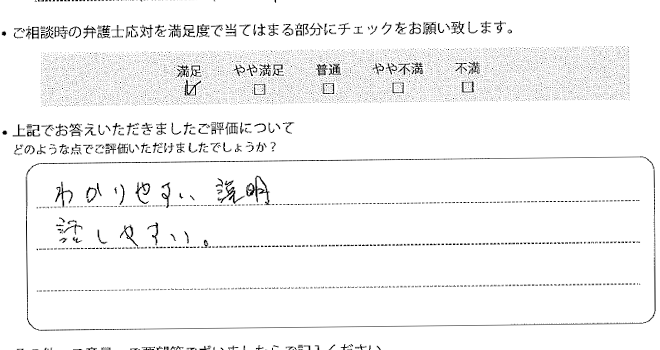 ・ご相談時の弁護士応対を満足度で当てはまる部分にチェックをお願い致します。
満足 やや満足 普通 やや不満 不満
・上記でお答えいただきましたご評価について
どのような点でご評価いただけましたでしょうか？
わかりやすい 説明
話しやすい。